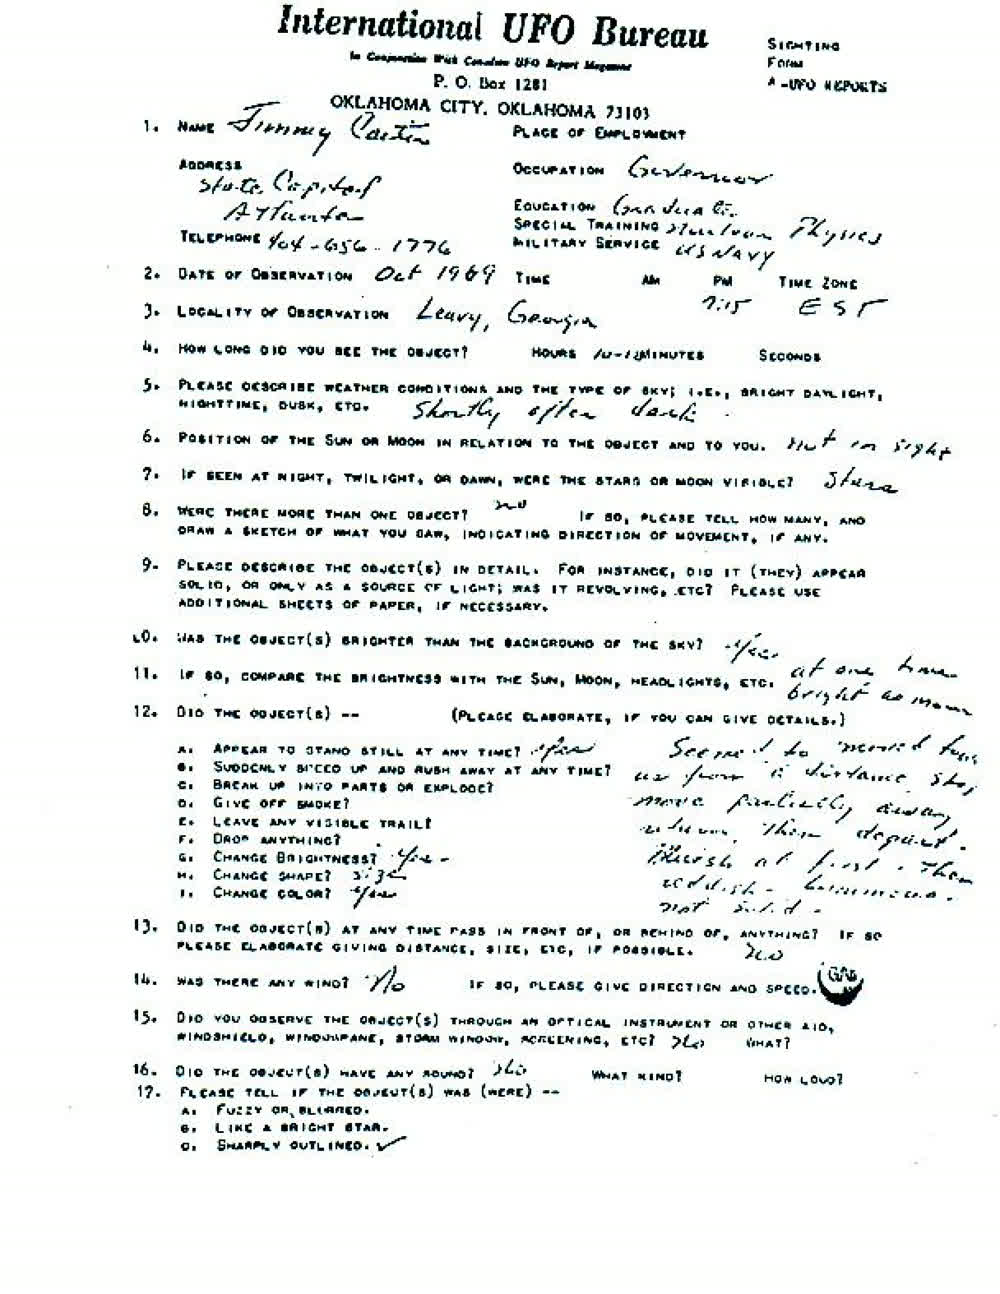 International UFO Bureau
In Conjunction With Canadian UFO Report Magazine
P. O. Box 1281
OKLAHOMA CITY, OKLAHOMA 73103
SIGHTING
FORM
A -UFO REPORTS
1. NAME Jimmy Carter PLACE OF EMPLOYMENT
ADDRESS State Capitol OCCUPATION Governor
Atlanta EDUCATION Graduate
SPECIAL TRAINING Nuclear Physics
TELEPHONE 404-656-1776 MILITARY SERVICE US NAVY
2. DATE OF OBSERVATION Oct 1969 TIME AM PM TIME ZONE
7:15 EST
3. LOCALITY OF OBSERVATION Leary, Georgia
4. HOW LONG DID YOU SEE THE OBJECT? HOURS 10-12 MINUTES SECONDS
5. PLEASE DESCRIBE WEATHER CONDITIONS AND THE TYPE OF SKY; I.E., BRIGHT DAYLIGHT,
NIGHTTIME, DUSK, ETC. Shortly after dark.
6. POSITION OF THE SUN OR MOON IN RELATION TO THE OBJECT AND TO YOU. Not in sight
7. IF SEEN AT NIGHT, TWILIGHT, OR DAWN, WERE THE STARS OR MOON VISIBLE? Stars
8. WERE THERE MORE THAN ONE OBJECT? no IF SO, PLEASE TELL HOW MANY, AND
DRAW A SKETCH OF WHAT YOU SAW, INDICATING DIRECTION OF MOVEMENT, IF ANY.
9. PLEASE DESCRIBE THE OBJECT(S) IN DETAIL. FOR INSTANCE, DID IT (THEY) APPEAR
SOLID, OR ONLY AS A SOURCE OF LIGHT; WAS IT REVOLVING, ETC? PLEASE USE
ADDITIONAL SHEETS OF PAPER, IF NECESSARY.
10. WAS THE OBJECT(S) BRIGHTER THAN THE BACKGROUND OF THE SKY? yes
11. IF SO, COMPARE THE BRIGHTNESS WITH THE SUN, MOON, HEADLIGHTS, ETC. at one time
bright as moon
12. DID THE OBJECT(S) -- (PLEASE ELABORATE, IF YOU CAN GIVE DETAILS.)
A. APPEAR TO STAND STILL AT ANY TIME? yes
B. SUDDENLY SPEED UP AND RUSH AWAY AT ANY TIME?
C. BREAK UP INTO PARTS OR EXPLODE?
D. GIVE OFF SMOKE?
E. LEAVE ANY VISIBLE TRAIL?
F. DROP ANYTHING?
G. CHANGE BRIGHTNESS? yes -
H. CHANGE SHAPE? size
I. CHANGE COLOR? yes
Seemed to move
us from a distance, stop
move partially away
return, then depart.
Bluish at first - Then
reddish - luminous -
not solid -
13. DID THE OBJECT(S) AT ANY TIME PASS IN FRONT OF, OR BEHIND OF, ANYTHING? IF SO
PLEASE ELABORATE GIVING DISTANCE, SIZE, ETC, IF POSSIBLE. no
14. WAS THERE ANY WIND? No IF SO, PLEASE GIVE DIRECTION AND SPEED.
15. DID YOU OBSERVE THE OBJECT(S) THROUGH AN OPTICAL INSTRUMENT OR OTHER AID,
WINDSHIELD, WINDOWPANE, STORM WINDOW, SCREENING, ETC? No WHAT?
16. DID THE OBJECT(S) HAVE ANY SOUND? No WHAT KIND? HOW LOUD?
17. PLEASE TELL IF THE OBJECT(S) WAS (WERE) --
A. FUZZY OR BLURRED.
B. LIKE A BRIGHT STAR.
C. SHARPLY OUTLINED. ✓